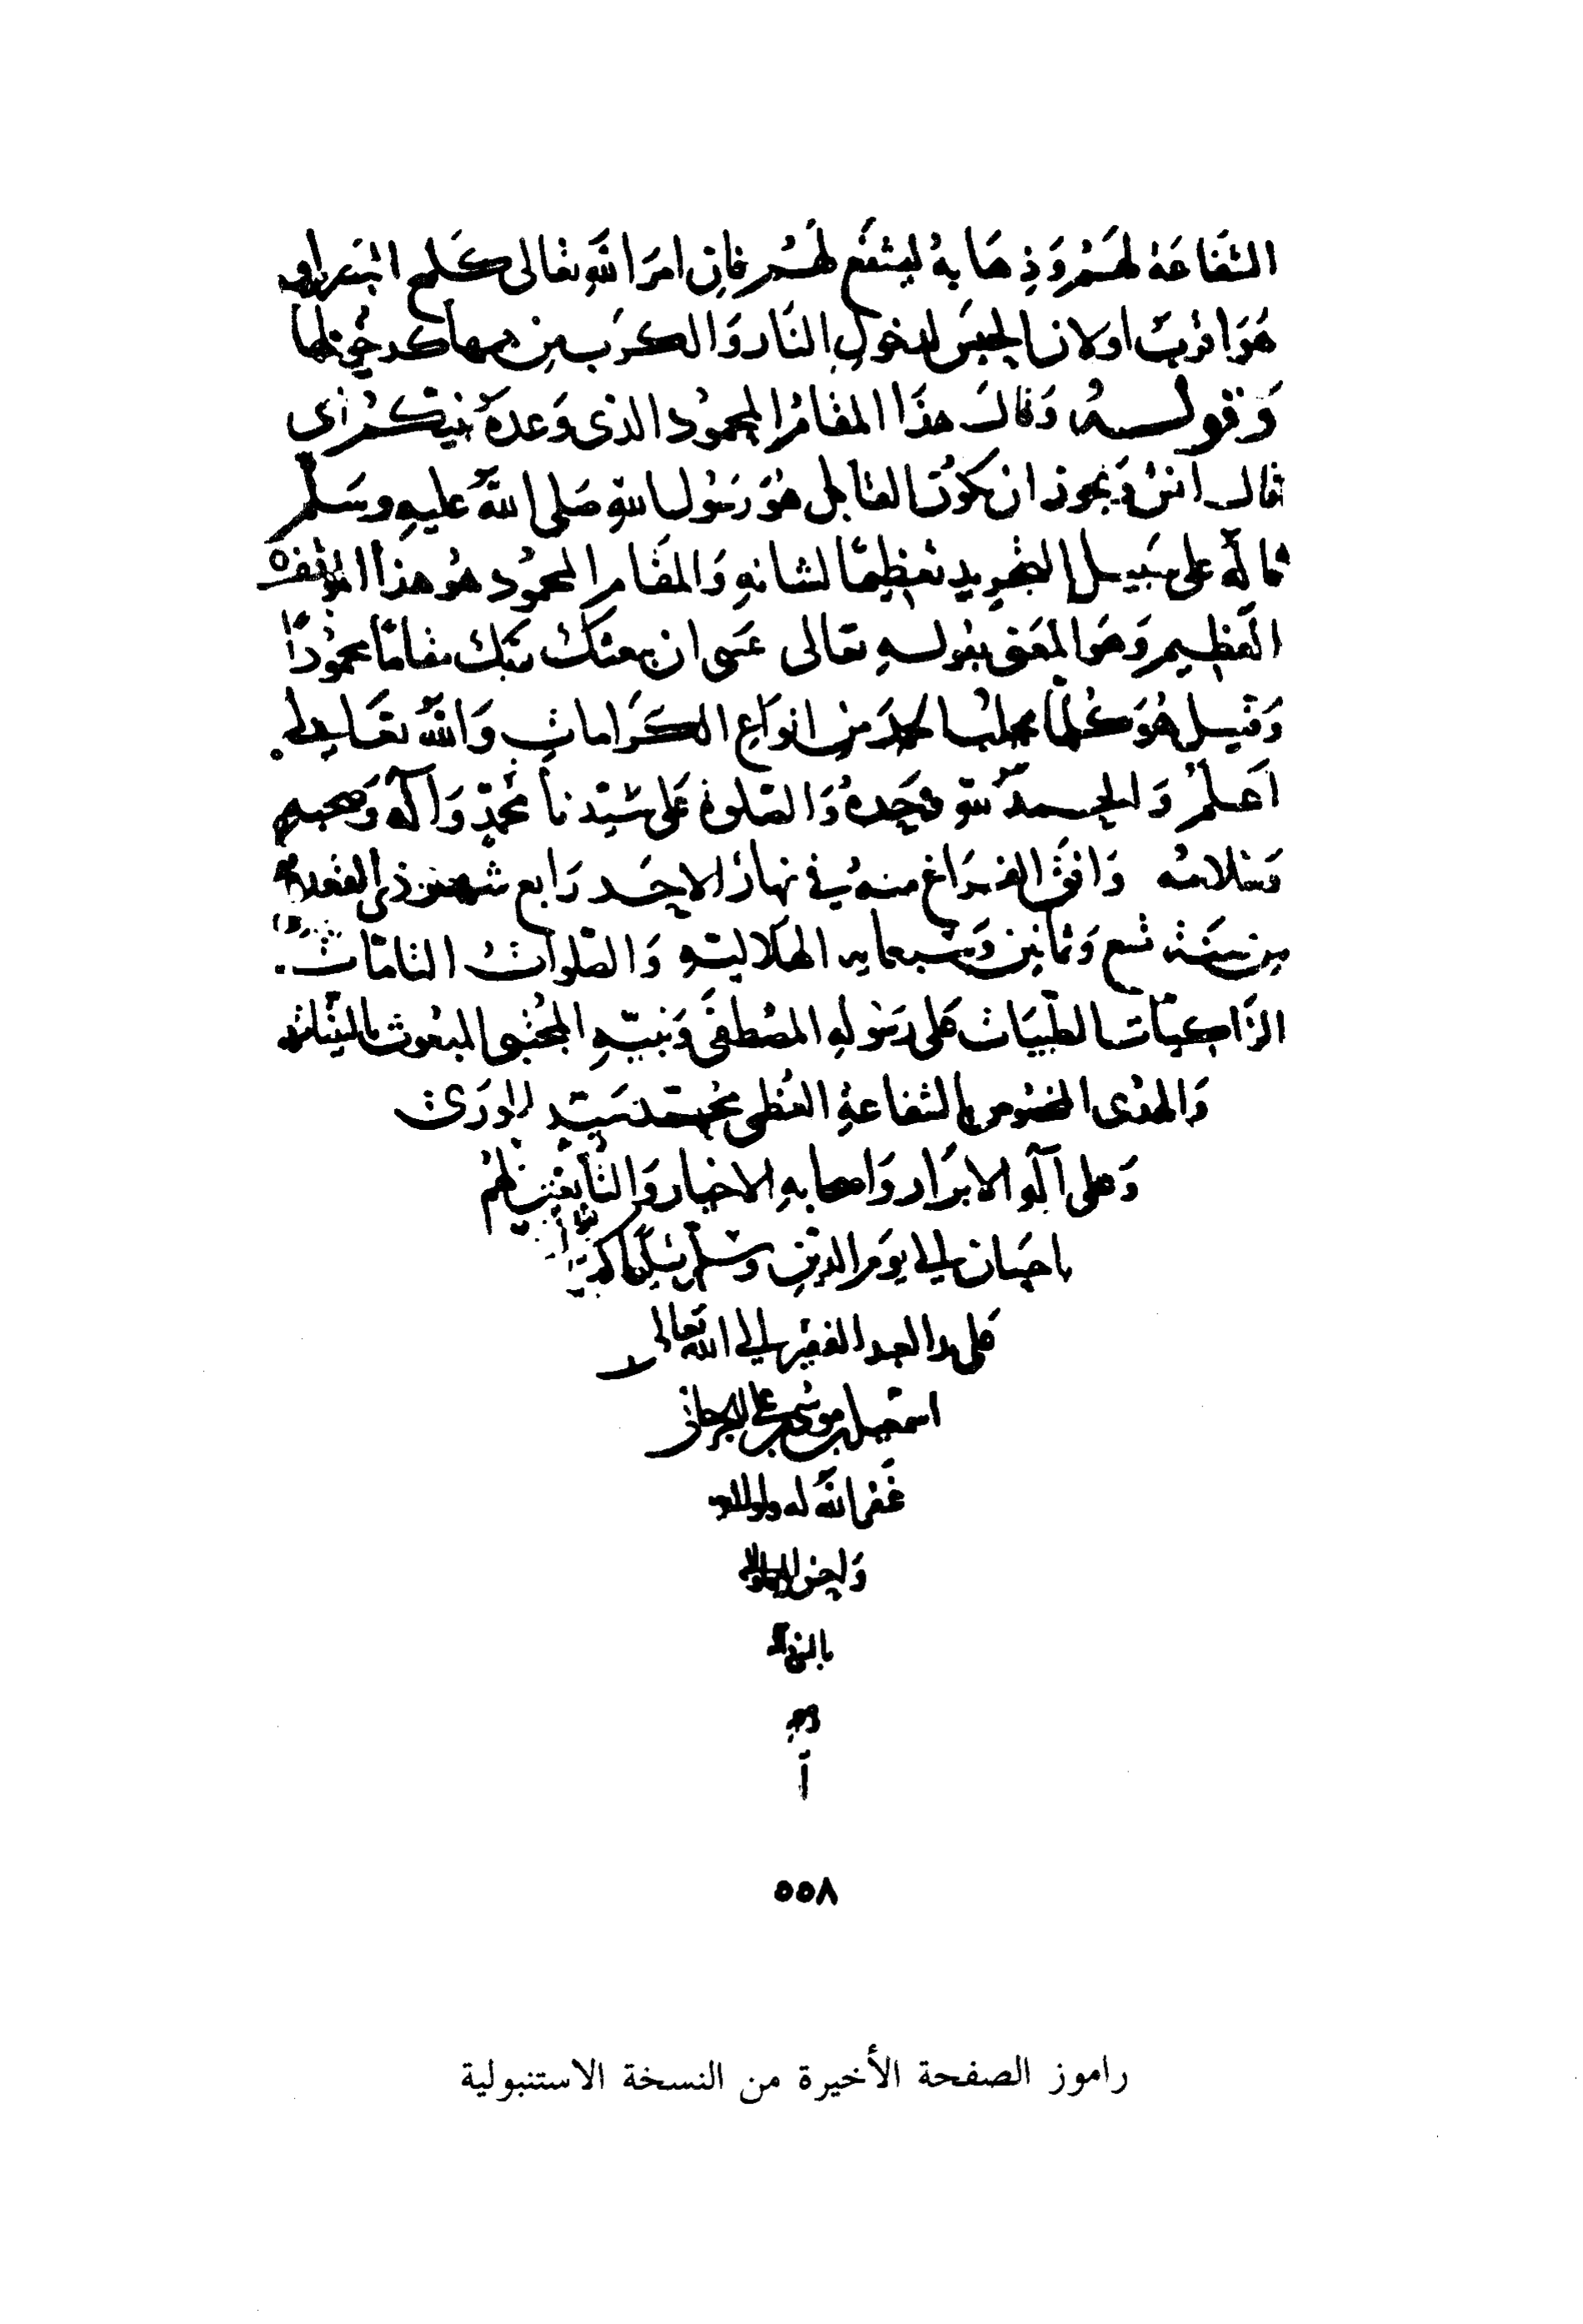 الشفاعة لهم وذهابه ليشفع لهم فان امر الله تعالى كلمح البصر او
هو اقرب او لان الحبس لدخول النار والكرب من همها كدخولها
وقوله وقال هذا المقام المحمود الذى وعده نبيكم اى
قال انس ويجوز ان يكون القائل هو رسول الله صلى الله عليه وسلم
قاله على سبيل التجريد تعظيما لشانه والمقام المحمود هو هذا
العظيم وهو المعنى بقوله تعالى عسى ان يبعثك ربك مقاما محمودا
وقيل هو كلما يجلب الحمد من انواع الكرامات والله تعالى
اعلم والحمد لله وحده والصلوة على سيدنا محمد وآله وصحبه
وسلامه وافق الفراغ منه في نهار الاحد رابع شهر ذى القعدة
من سنة تسع وثمانين وسبعمايه الهلالية والصلوات التامات
الزاكيات الطيبات على رسوله المصطفى ونبيه المجتبى المبعوث
والهدى المخصوص بالشفاعة العظمى محمد سيد الورى
وعلى آله الابرار واصحابه الاخيار والتابعين لهم
باحسان الى يوم الدين وسلم تسليما كثيرا
على يد العبد الفقير الى الله تعالى
اسمعيل بن موسى بن على
غفر الله له ولوالديه
٥٥٨
راموز الصفحة الأخيرة من النسخة الاستنبولية